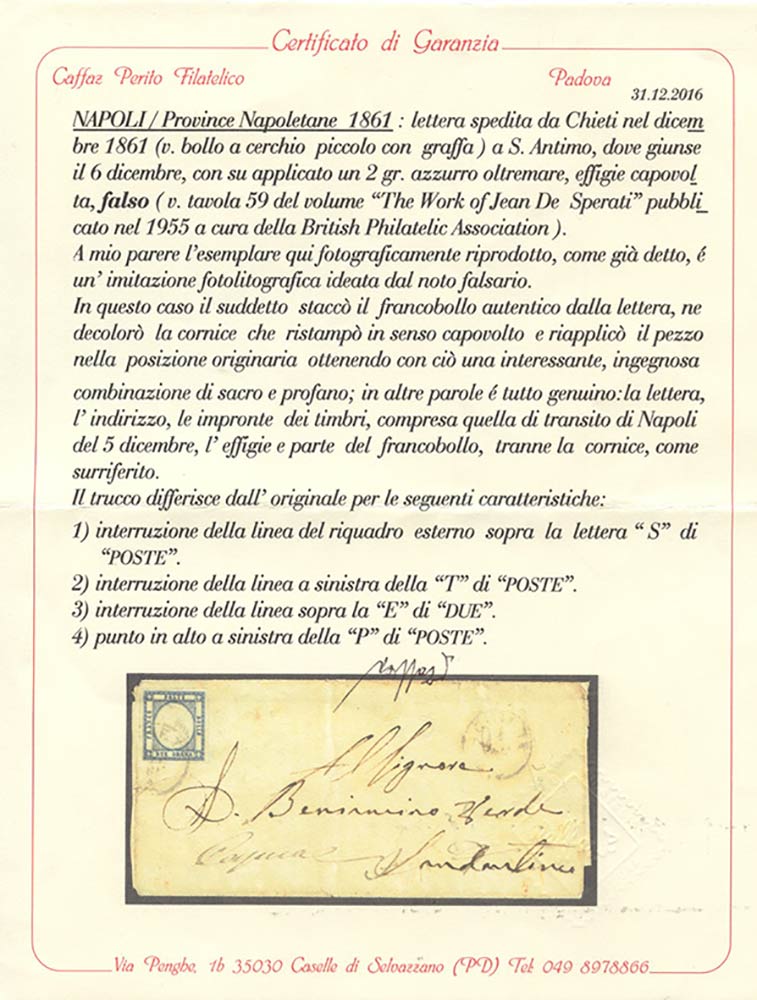 Certificato di Garanzia
Caffaz Perito Filatelico Padova
31.12.2016
NAPOLI / Province Napoletane 1861 : lettera spedita da Chieti nel dicem
bre 1861 (v. bollo a cerchio piccolo con graffa ) a S. Antimo, dove giunse
il 6 dicembre, con su applicato un 2 gr. azzurro oltremare, effigie capovol
ta, falso ( v. tavola 59 del volume “The Work of Jean De Sperati” pubbli
cato nel 1955 a cura della British Philatelic Association ).
A mio parere l'esemplare qui fotograficamente riprodotto, come già detto, é
un' imitazione fotolitografica ideata dal noto falsario.
In questo caso il suddetto staccò il francobollo autentico dalla lettera, ne
decolorò la cornice che ristampò in senso capovolto e riapplicò il pezzo
nella posizione originaria ottenendo con ciò una interessante, ingegnosa
combinazione di sacro e profano; in altre parole é tutto genuino: la lettera,
l' indirizzo, le impronte dei timbri, compresa quella di transito di Napoli
del 5 dicembre, l' effigie e parte del francobollo, tranne la cornice, come
surriferito.
Il trucco differisce dall' originale per le seguenti caratteristiche:
1) interruzione della linea del riquadro esterno sopra la lettera “ S” di
“POSTE”.
2) interruzione della linea a sinistra della “T” di “POSTE”.
3) interruzione della linea sopra la “E” di “DUE”.
4) punto in alto a sinistra della “P” di “POSTE”.
Caffaz
POSTE
FRANCO BOLLO
DUE GRANA
Al Signore
D. Beniamino Verde
Capua Santantimo
Via Penghe, 1b 35030 Caselle di Selvazzano (PD) Tel: 049 8978866